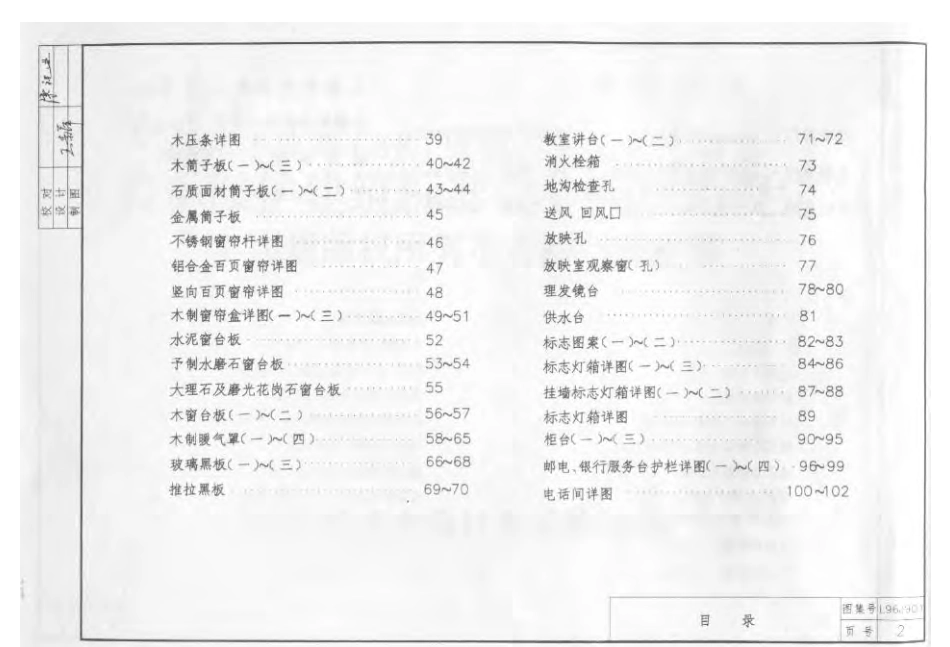 木压条详图 39
木筒子板(一)~(三) 40~42
石质面材筒子板(一)~(二) 43~44
金属筒子板 45
不锈钢窗帘杆详图 46
铝合金百页窗帘详图 47
竖向百页窗帘详图 48
木制窗帘盒详图(一)~(三) 49~51
水泥窗台板 52
予制水磨石窗台板 53~54
大理石及磨光花岗石窗台板 55
木窗台板(一)~(二) 56~57
木制暖气罩(一)~(四) 58~65
玻璃黑板(一)~(三) 66~68
推拉黑板 69~70
教室讲台(一)~(二) 71~72
消火栓箱 73
地沟检查孔 74
送风 回风口 75
放映孔 76
放映室观察窗(孔) 77
理发镜台 78~80
供水台 81
标志图案(一)~(二) 82~83
标志灯箱详图(一)~(三) 84~86
挂墙标志灯箱详图(一)~(二) 87~88
标志灯箱详图 89
柜台(一)~(三) 90~95
邮电、银行服务台护栏详图(一)~(四) 96~99
电话间详图 100~102
校对
设计
制图
目 录
图集号 L96J901
页号 2